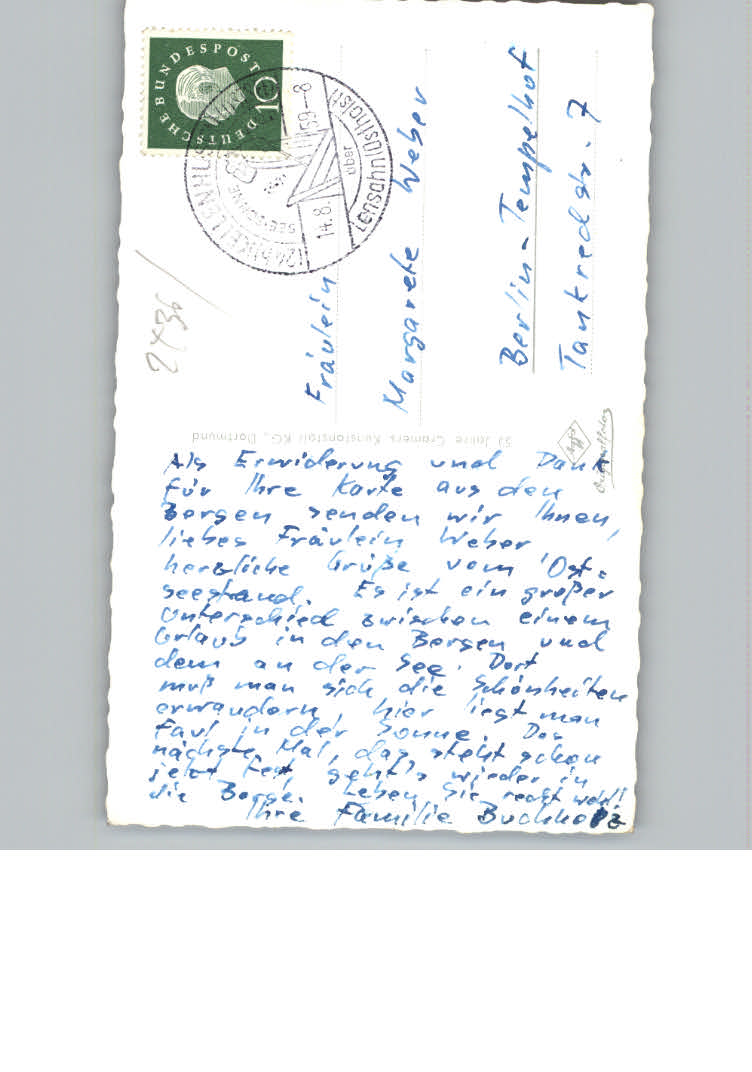 DEUTSCHE BUNDESPOST
10
(24b) KELLENHUSEN
14.8.59-8
über
Lensahn (Ostholst)
2436
Fräulein
Margarete Weber
Berlin-Tempelhof
Tankredstr. 7
50 Jahre Cramers Kunstanstalt KG., Dortmund
Agfa
Als Erwiderung und Dank
für Ihre Karte aus den
Bergen senden wir Ihnen,
liebes Fräulein Weber
herzliche Grüße vom Ost-
seestrand. Es ist ein großer
Unterschied zwischen einem
Urlaub in den Bergen und
dem an der See. Dort
muß man sich die Schönheiten
erwandern, hier liegt man
faul in der Sonne. Das
nächste Mal, das steht schon
jetzt fest, geht's wieder in
die Berge. Leben Sie recht wohl!
Ihre Familie Buchholz